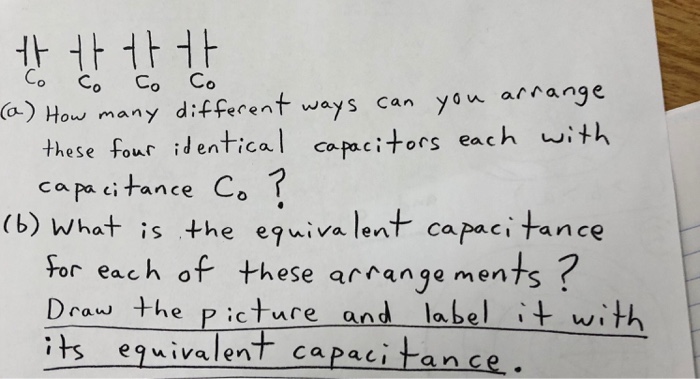 Co Co Co Co
(a) How many different ways can you arrange
these four identical capacitors each with
capacitance Co ?
(b) What is the equivalent capacitance
for each of these arrangements ?
Draw the picture and label it with
its equivalent capacitance.